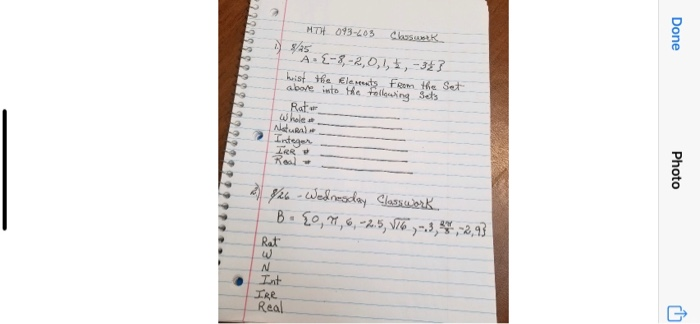 MTH 093-603 Classwork
1) 8/25
A = {-8, -2, 0, 1, ½, -3½}
List the Elements From the Set
above into the following Sets
Rat #
Whole #
Natural #
Integer
IRR #
Real #
2) 8/26 - Wednesday Classwork
B = {0, π, 6, -2.5, √16, -.3, -2, 9}
Rat
W
N
Int
IRR
Real
Done
Photo